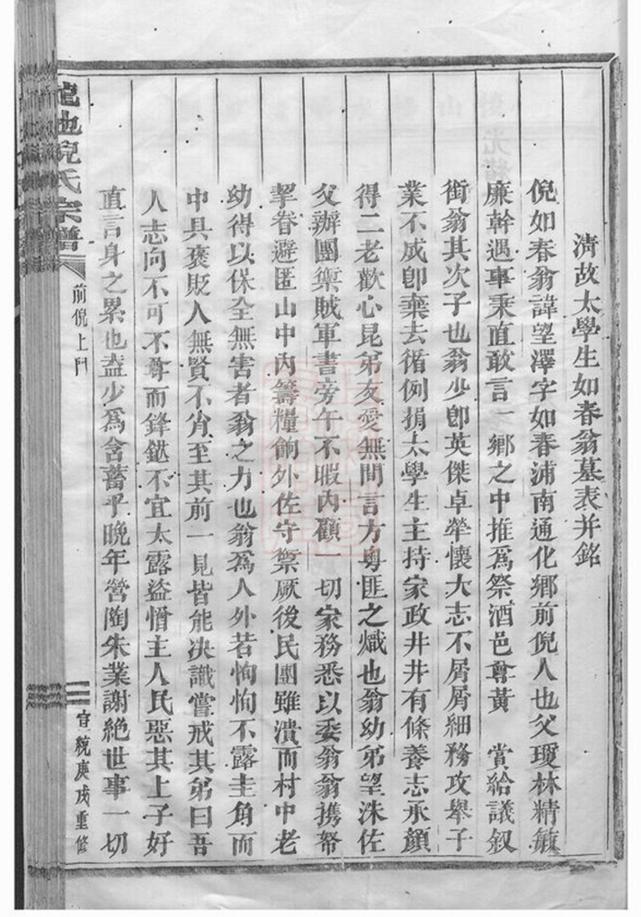 清故太學生如春翁墓表并銘
倪如春翁諱望澤字如春浦南通化鄉前倪人也父瓊林精敏
廉幹遇事秉直敢言一鄉之中推爲祭酒邑尊黃　賞給議叙
銜翁其次子也翁少卽英傑卓犖懷大志不屑屑細務攻舉子
業不成卽棄去循例捐太學生主持家政井井有條養志承顏
得二老歡心昆弟友愛無間言方粵匪之熾也翁幼弟望洙佐
父辦團禦賊軍書旁午不暇內顧一切家務悉以委翁翁携帑
挈眷避匿山中內籌糧餉外佐守禦厥後民團雖潰而村中老
幼得以保全無害者翁之力也翁爲人外若恂恂不露圭角而
中具褒貶人無賢不肖至其前一見皆能决識嘗戒其弟曰吾
人志向不可不尊而鋒鋩不宜太露盜憎主人民惡其上子好
直言身之累也盍少爲含蓄乎晚年營陶朱業謝絕世事一切
龍池倪氏宗譜
前倪上門
宣統庚戌重修